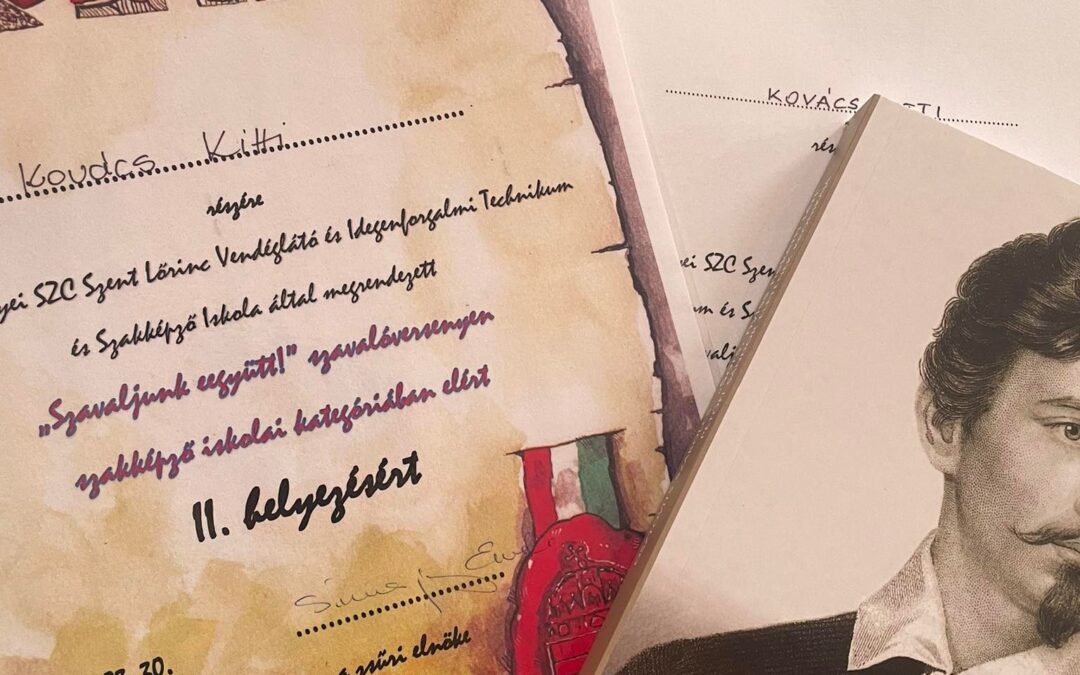 Kovács Kitti
részére
yei SZC Szent Lőrinc Vendéglátó és Idegenforgalmi Technikum
és Szakképző Iskola által megrendezett
„Szavaljunk eegyütt!” szavalóversenyen
szakképző iskolai kategóriában elért
II. helyezésért
zsűri elnöke
30.
KOVÁCS TTI
rés
yei SZC Szen
m és S
valj